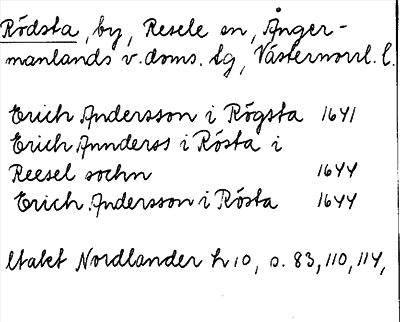 Rödsta, by, Resele sn, Ånger-
manlands v. doms. lg, Västernorrl. l.
Erich Andersson i Rögsta 1641
Erich Annderss i Rösta i
Reesel sochn 1644
Erich Andersson i Rösta 1644
Utakt Nordlander h 10, s. 83, 110, 114,